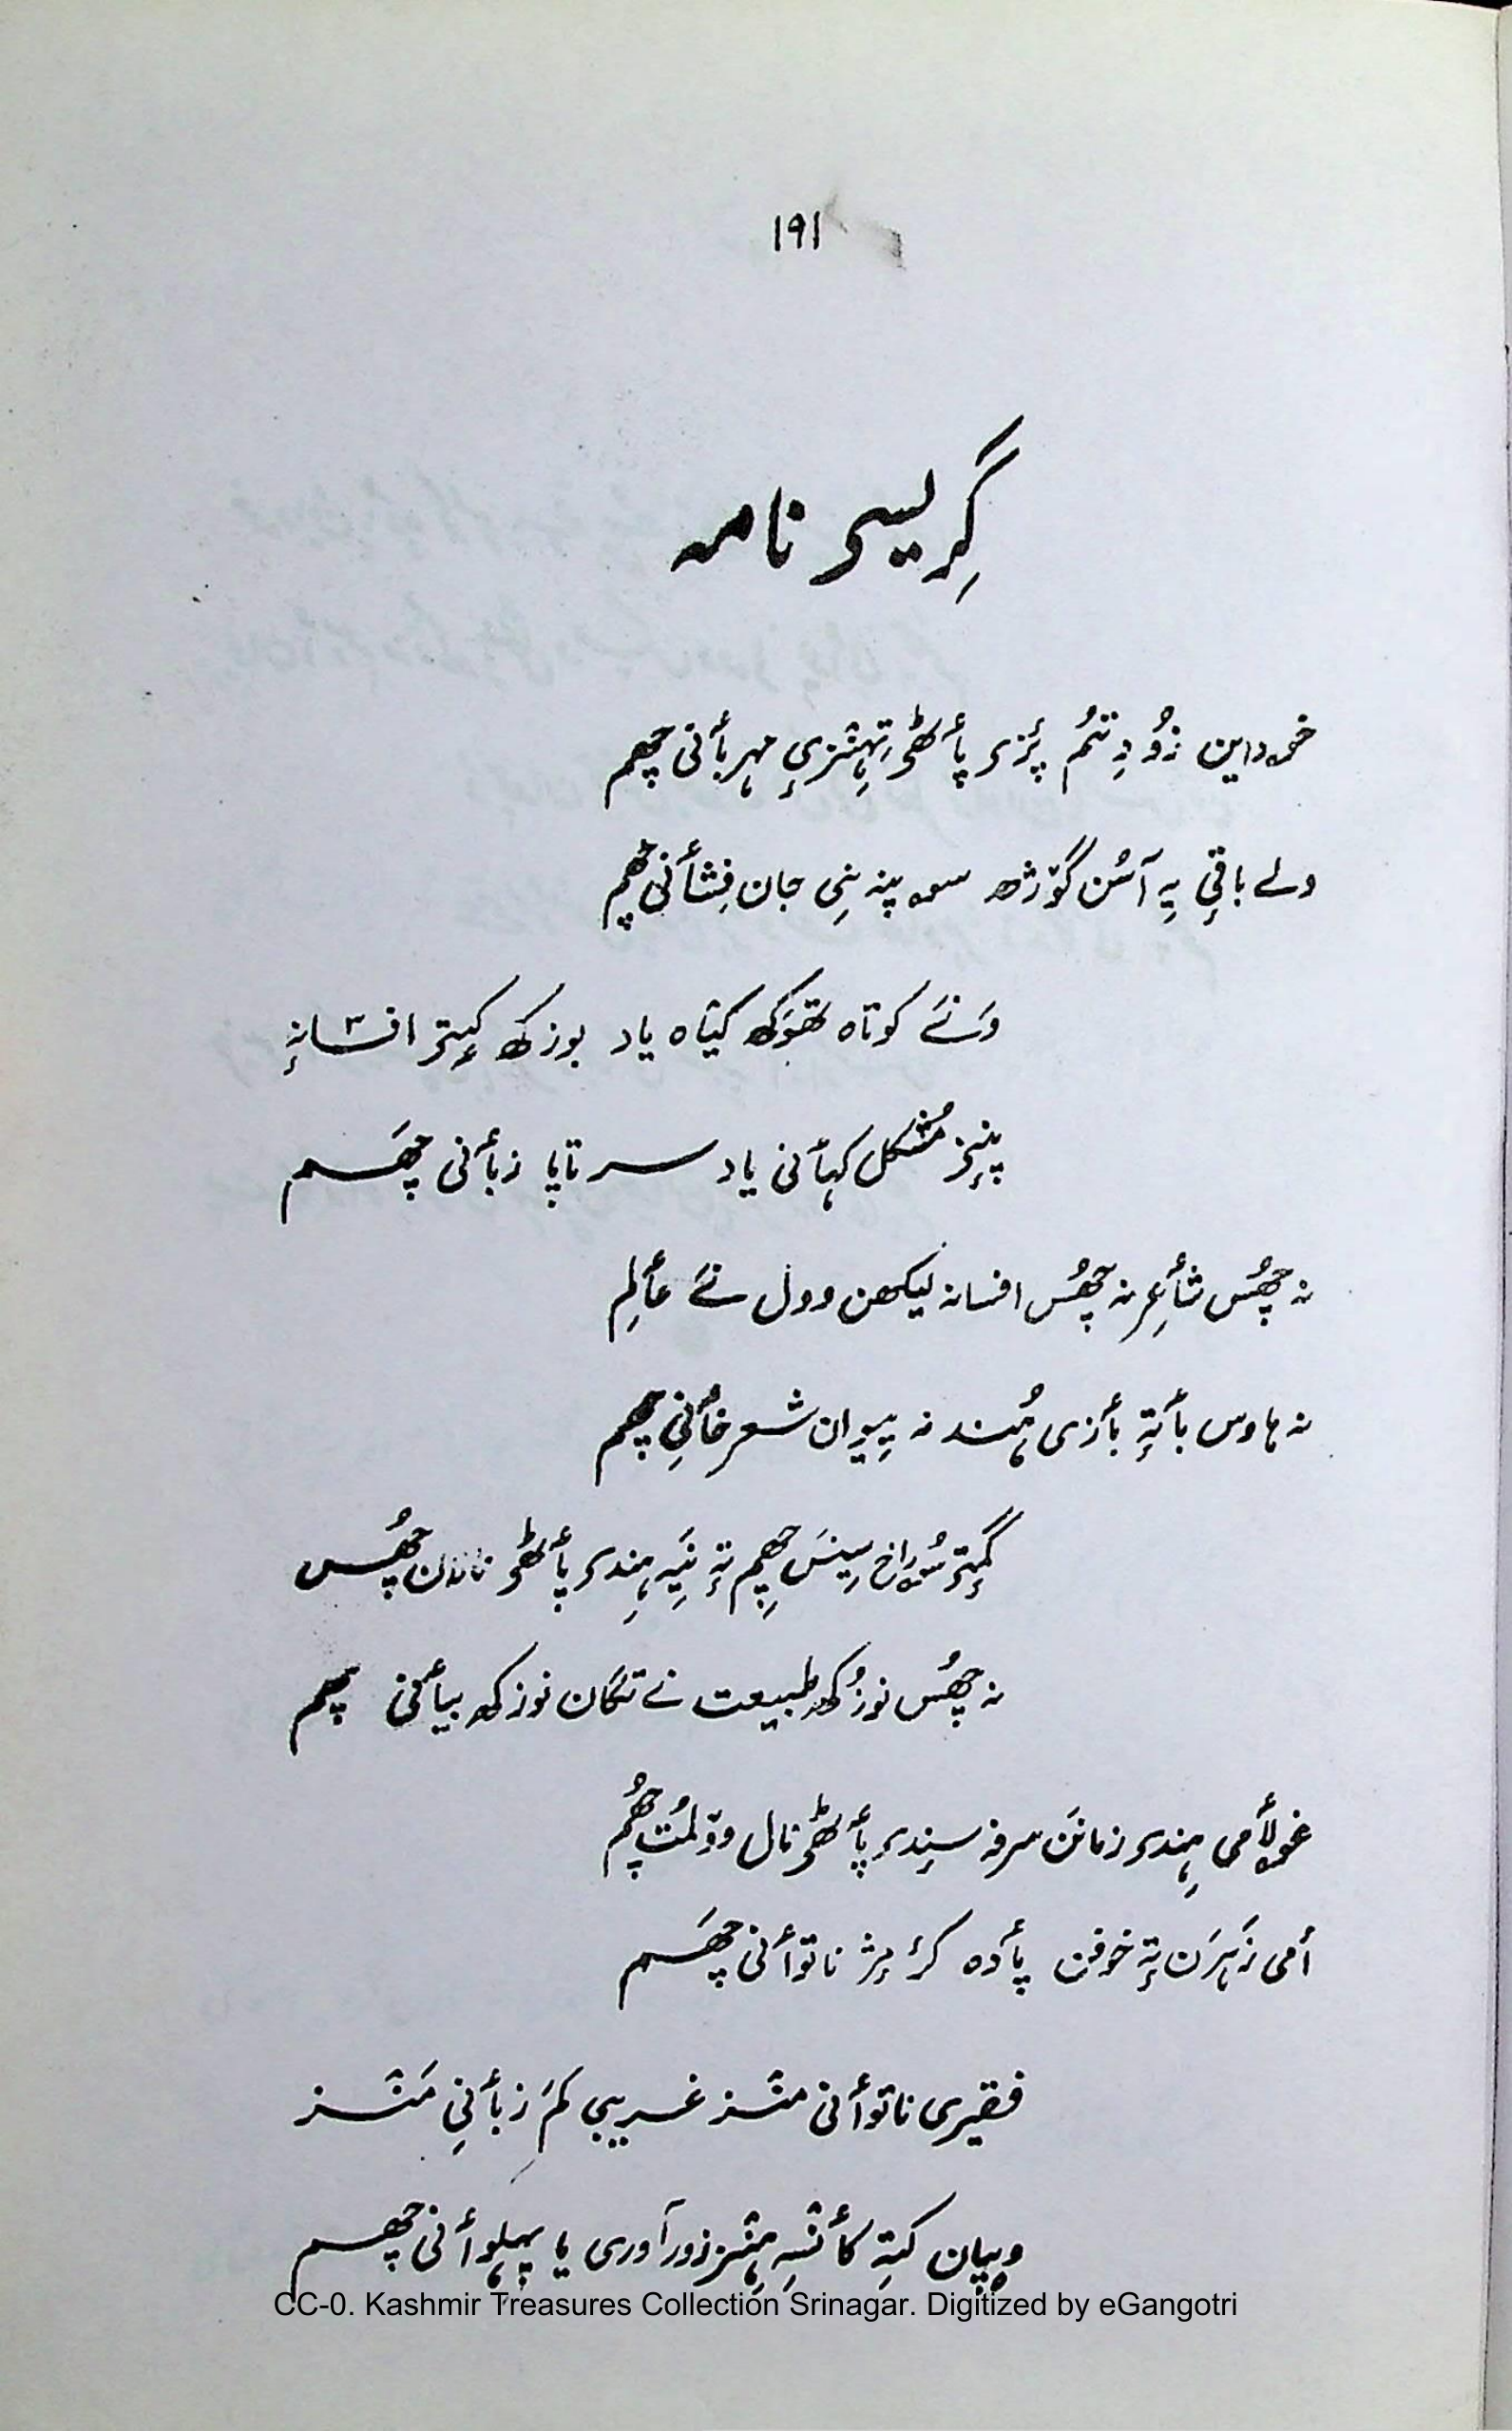 ۱۹۱
گرِیسۍ نامہ
خۄداین زُو دِتنُم پٔزۍ پٲٹھۍ تِہنٛزٕے مہربٲنی چھم
ولے باقٕے یہِ آسُن گوٚژھ سۄ پننِی جان فِشٲنی چھم
وَنَے کوتاہ تھوَکھ کیٛاہ یاد بوزکھ کٕیتۍ افسانہٕ
پنٕنۍ مُشکل کہٲنی یاد سر تاپا زبٲنی چھَم
نہ چھُس شٲعِر نہ چھُس افسانہ لیکھن وول نَے عٲلِم
نہ ہاوس بٲتہٕ بٲزی ہُند نہ پیوان شعر خٲنی چھم
گٔمٕتۍ سُراخ سیٖنَس چھِم تہٕ نَیہِ ہِندۍ پٲٹھۍ نالان چھُس
نہ چھُس نوزُکھ طبیعت نے تگان نوزکھ بیٲنی چھم
غۄلٲمی ہِندۍ زمانَن سرفہ سٕندۍ پٲٹھۍ نال وولمُت چھُم
أمی زَہرَن تہٕ خوفن پٲدہ کرٕ مژ ناتوٲنی چھَم
فقیری ناتوٲنی منٛز غریبی کَم زبٲنی مَنٛز
وۄپان کتہِ کٲنٛسہِ ہنٛز زورآوری یا پہلوٲنی چھم
CC-0. Kashmir Treasures Collection Srinagar. Digitized by eGangotri